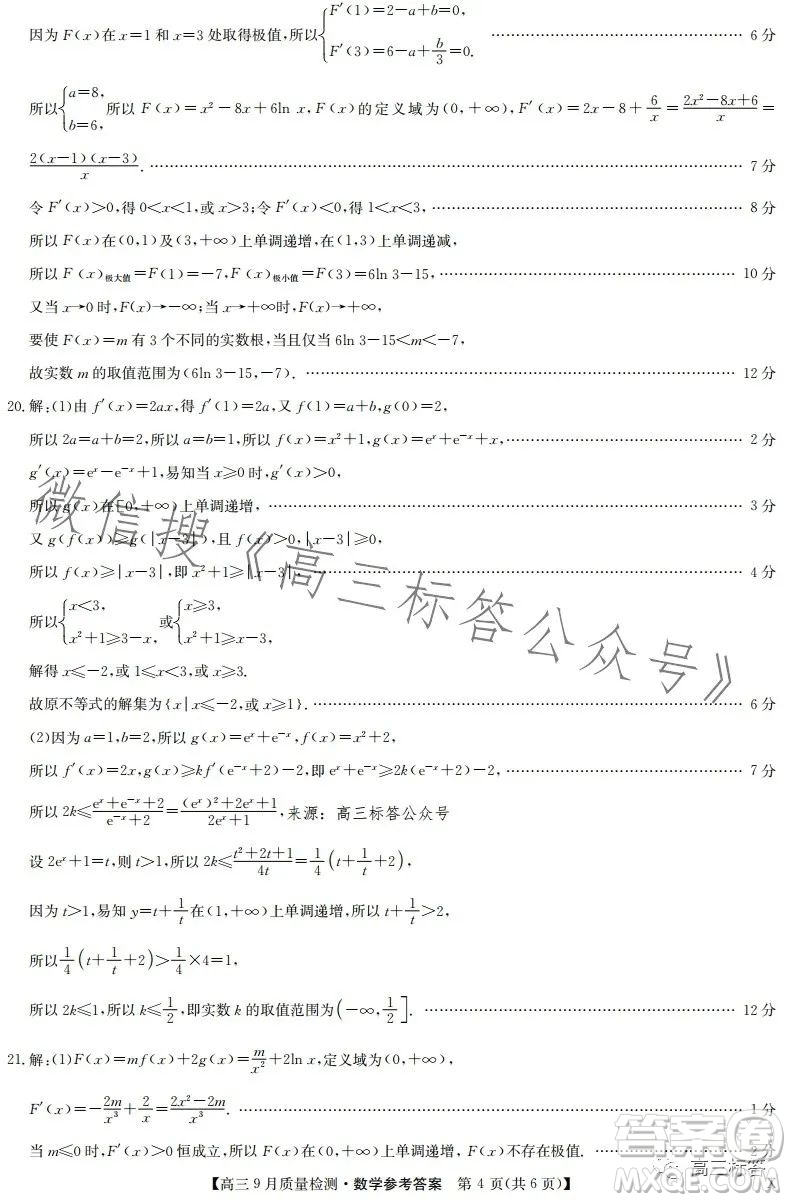 因为 F(x)在 x=1 和 x=3 处取得极值,所以{F′(1)=2−a+b=0, F′(3)=6−a+b/3=0. …… 6 分
所以{a=8, b=6, 所以 F(x)=x²−8x+6ln x,F(x)的定义域为(0,+∞),F′(x)=2x−8+6/x=(2x²−8x+6)/x=
2(x−1)(x−3)/x. …… 7 分
令 F′(x)>0,得 0<x<1,或 x>3;令 F′(x)<0,得 1<x<3, …… 8 分
所以 F(x)在(0,1)及(3,+∞)上单调递增,在(1,3)上单调递减,
所以 F(x)极大值=F(1)=−7,F(x)极小值=F(3)=6ln 3−15, …… 10 分
又当 x→0 时,F(x)→−∞;当 x→+∞时,F(x)→+∞,
要使 F(x)=m 有 3 个不同的实数根,当且仅当 6ln 3−15<m<−7,
故实数 m 的取值范围为(6ln 3−15,−7). …… 12 分
20.解:(1)由 f′(x)=2ax,得 f′(1)=2a,又 f(1)=a+b,g(0)=2,
所以 2a=a+b=2,所以 a=b=1,所以 f(x)=x²+1,g(x)=eˣ+e⁻ˣ+x, …… 2 分
g′(x)=eˣ−e⁻ˣ+1,易知当 x≥0 时,g′(x)>0,
所以 g(x)在[0,+∞)上单调递增, …… 3 分
又 g(f(x))≥g(|x−3|),且 f(x)>0,|x−3|≥0,
所以 f(x)≥|x−3|,即 x²+1≥|x−3|, …… 4 分
所以{x<3, x²+1≥3−x, 或{x≥3, x²+1≥x−3,
解得 x≤−2,或 1≤x<3,或 x≥3.
故原不等式的解集为{x|x≤−2,或 x≥1}. …… 6 分
(2)因为 a=1,b=2,所以 g(x)=eˣ+e⁻ˣ,f(x)=x²+2,
所以 f′(x)=2x,g(x)≥kf′(e⁻ˣ+2)−2,即 eˣ+e⁻ˣ≥2k(e⁻ˣ+2)−2, …… 7 分
所以 2k≤(eˣ+e⁻ˣ+2)/(e⁻ˣ+2)=((eˣ)²+2eˣ+1)/(2eˣ+1), 来源：高三标答公众号
设 2eˣ+1=t,则 t>1,所以 2k≤(t²+2t+1)/4t=1/4(t+1/t+2),
因为 t>1,易知 y=t+1/t 在(1,+∞)上单调递增,所以 t+1/t>2,
所以 1/4(t+1/t+2)>1/4×4=1,
所以 2k≤1,所以 k≤1/2,即实数 k 的取值范围为(−∞,1/2]. …… 12 分
21.解:(1)F(x)=mf(x)+2g(x)=m/x²+2ln x,定义域为(0,+∞),
F′(x)=−2m/x³+2/x=(2x²−2m)/x³. …… 1 分
当 m≤0 时,F′(x)>0 恒成立,所以 F(x)单调递增,F(x)不存在极值. …… 2 分
【高三 9 月质量检测·数学参考答案 第 4 页(共 6 页)】
微信搜《高三标答公众号》
答案卷
高三标答